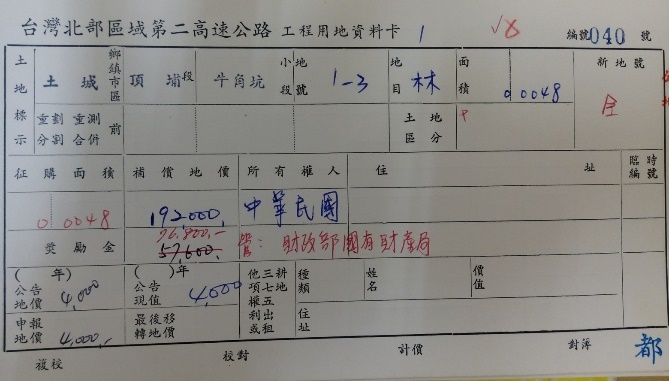 台灣北部區域第二高速公路 工程用地資料卡 1 編號 040 號
土地標示 土城 鄉鎮市區 頂埔 段 牛角坑 小段 地號 1-3 地目 林 面積 0 0048 新地號
重劃 重測 分割 合併 前 土地區分
征購面積 補償地價 所有權人 住址 臨時編號
0 0048 192000. 中華民國
獎勵金 76,800.- 57,600. 管：財政部國有財產局
( 年) 公告地價 4,000 ( )年 公告現值 4,000 他項權利 三七五出租 或耕地 種類 姓名 價值
申報地價 4,000.- 最後移轉地價 住址
複校 校對 計價 對簿 都